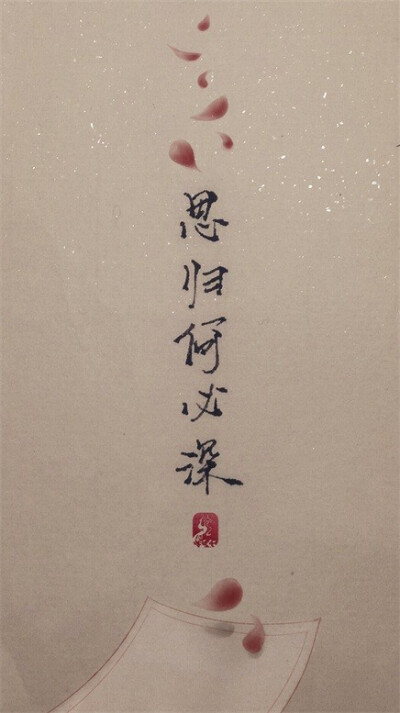 思归何必深